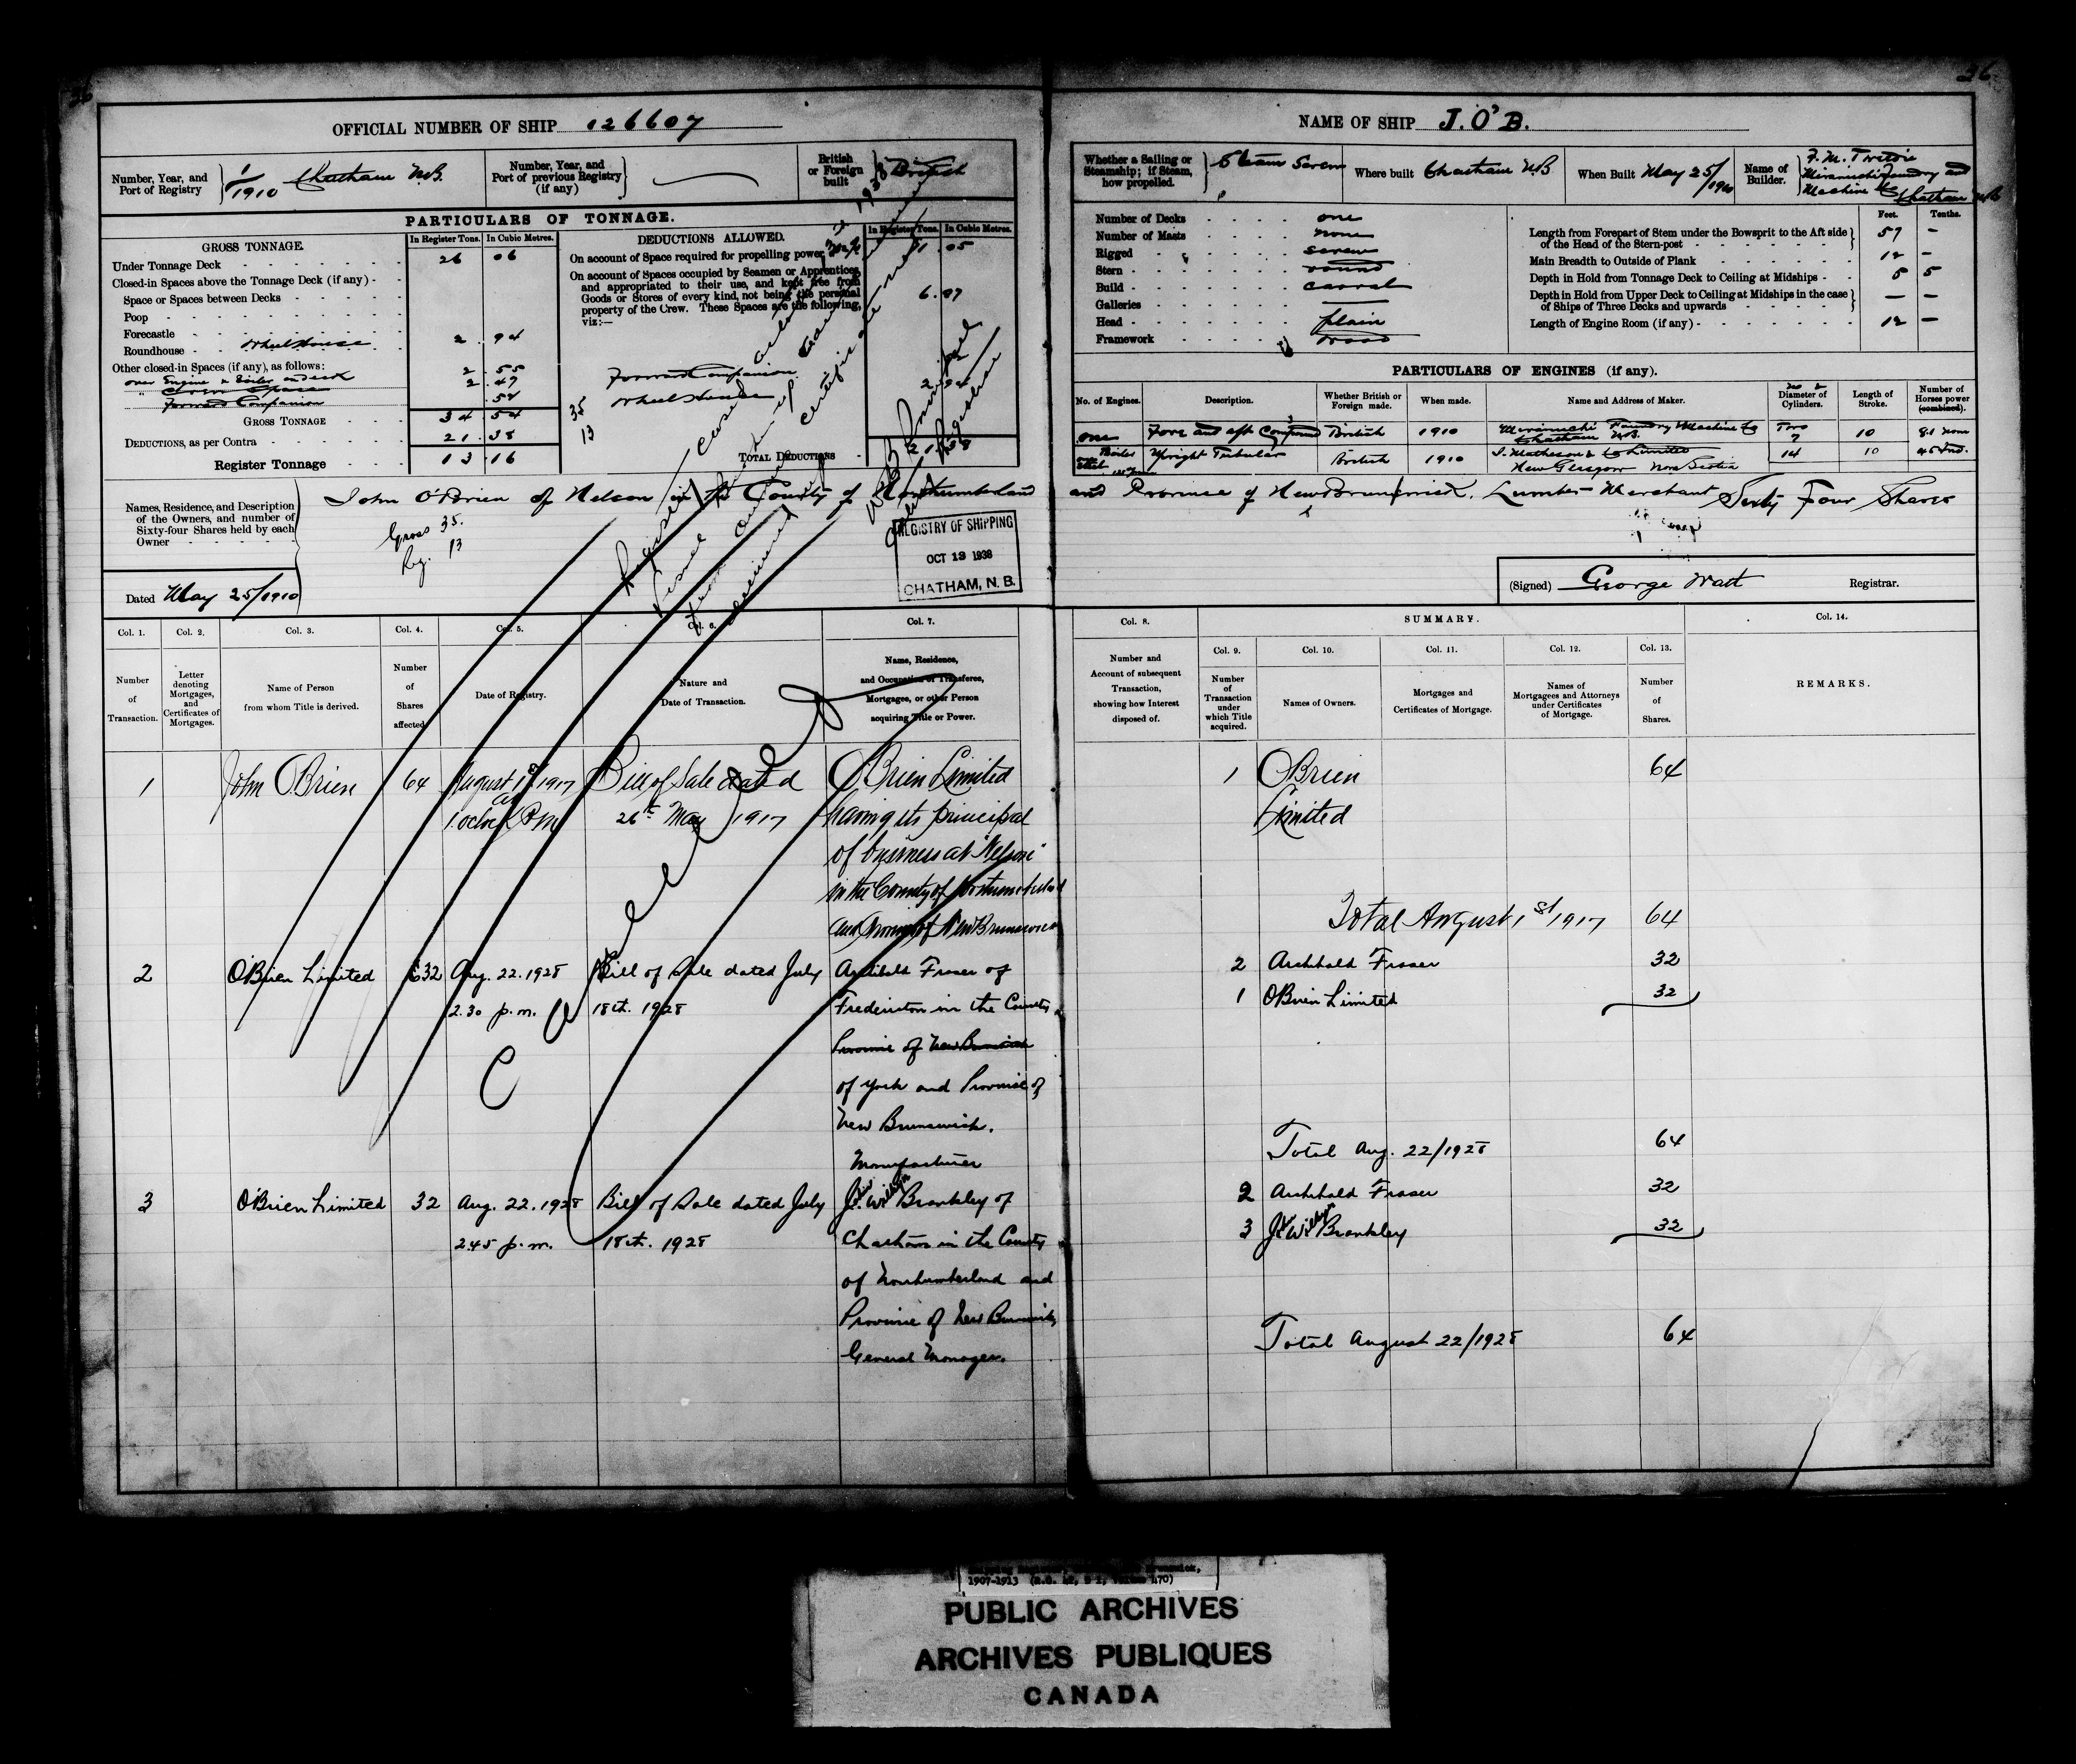 36
36
OFFICIAL NUMBER OF SHIP 126607
Number, Year, and Port of Registry 1/1910 Chatham N.B.
Number, Year, and Port of previous Registry (if any)
British or Foreign built British
PARTICULARS OF TONNAGE.
GROSS TONNAGE.
In Register Tons. In Cubic Metres.
Under Tonnage Deck 26 06
Closed-in Spaces above the Tonnage Deck (if any)
Space or Spaces between Decks
Poop
Forecastle
Roundhouse Wheel House 2 . 94
Other closed-in Spaces (if any), as follows:
over Engine & Boiler on deck 2 . 55
2 . 47
Forward Companion . 52
GROSS TONNAGE 34 54
DEDUCTIONS, as per Contra 21 . 38
Register Tonnage 13 16
DEDUCTIONS ALLOWED.
In Register Tons. In Cubic Metres.
On account of Space required for propelling power 11 . 05
On account of Spaces occupied by Seamen or Apprentices,
and appropriated to their use, and kept free from
Goods or Stores of every kind, not being the personal
property of the Crew. These Spaces are the following,
viz:—
Forward Companion
Wheel House 2 . 94
35
13
TOTAL DEDUCTIONS 21 38
Names, Residence, and Description
of the Owners, and number of
Sixty-four Shares held by each
Owner
John O'Brien of Nelson in the County of Northumberland
Gross 35.
Reg. 13
REGISTRY OF SHIPPING
OCT 13 1938
CHATHAM, N. B.
Dated May 25/1910
Col. 1. Col. 2. Col. 3. Col. 4. Col. 5. Col. 6. Col. 7.
Number of Transaction.
Letter denoting Mortgages, and Certificates of Mortgages.
Name of Person from whom Title is derived.
Number of Shares affected
Date of Registry.
Nature and Date of Transaction.
Name, Residence, and Occupation of Transferee, Mortgagee, or other Person acquiring Title or Power.
1 John O'Brien 64 August 1st 1917 Bill of Sale dated O'Brien Limited
at 1 oclock P.M 26th May 1917 having its principal
of business at Nelson
in the County of Northumberland
and Province of New Brunswick
2 O'Brien Limited 32 Aug. 22. 1928 Bill of Sale dated July Archibald Fraser of
2.30 p.m. 18th. 1928 Fredericton in the County
Province of New Brunswick
of York and Province of
New Brunswick.
Manufacturer
3 O'Brien Limited 32 Aug. 22. 1928 Bill of Sale dated July J. W. Brankley of
2.45 p.m. 18th. 1928 Chatham in the County
of Northumberland and
Province of New Brunswick
General Manager.
Cancelled
NAME OF SHIP J. O'B.
Whether a Sailing or Steamship; if Steam, how propelled. Steam Screw
Where built Chatham NB
When Built May 25/1910
Name of Builder.
Miramichi Foundry and
Machine Co
Chatham NB
Number of Decks one
Number of Masts none
Rigged screw
Stern round
Build carvel
Galleries
Head plain
Framework wood
Feet. Tenths.
Length from Forepart of Stem under the Bowsprit to the Aft side of the Head of the Stern-post 57 —
Main Breadth to Outside of Plank 12 —
Depth in Hold from Tonnage Deck to Ceiling at Midships 5 5
Depth in Hold from Upper Deck to Ceiling at Midships in the case of Ships of Three Decks and upwards — —
Length of Engine Room (if any) 12 —
PARTICULARS OF ENGINES (if any).
No. of Engines. Description. Whether British or Foreign made. When made. Name and Address of Maker. Diameter of Cylinders. Length of Stroke. Number of Horses power (combined).
one Fore and aft Compound British 1910 Miramichi Foundry Machine Co Two 7 10 8.1 nom
Chatham N.B.
Boiler Upright Tubular British 1910 I. Matheson & Co Limited 14 10 45 Ind.
New Glasgow Nova Scotia
and Province of New Brunswick. Lumber Merchant Sixty Four Shares
(Signed) George Watt Registrar.
Col. 8. SUMMARY. Col. 14.
Col. 9. Col. 10. Col. 11. Col. 12. Col. 13.
Number and Account of subsequent Transaction, showing how Interest disposed of.
Number of Transaction under which Title acquired.
Names of Owners.
Mortgages and Certificates of Mortgage.
Names of Mortgagees and Attorneys under Certificates of Mortgage.
Number of Shares.
REMARKS.
1 O'Brien 64
Limited
Total August 1st 1917 64
2 Archibald Fraser 32
1 O'Brien Limited 32
Total Aug. 22/1928 64
2 Archibald Fraser 32
3 J. W. Brankley 32
Total August 22/1928 64
1907-1913
PUBLIC ARCHIVES
ARCHIVES PUBLIQUES
CANADA